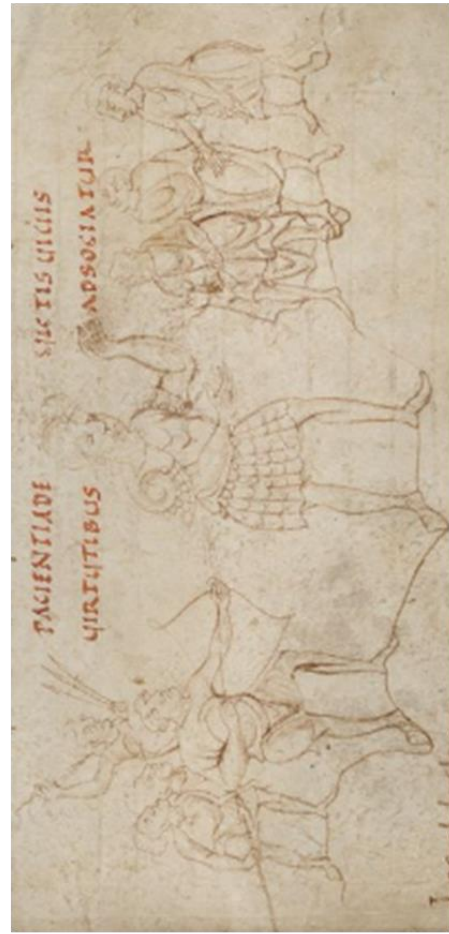 PACIENTIADE UICTIS UICIIS
UIRTUTIBUS ADSOCIATUR